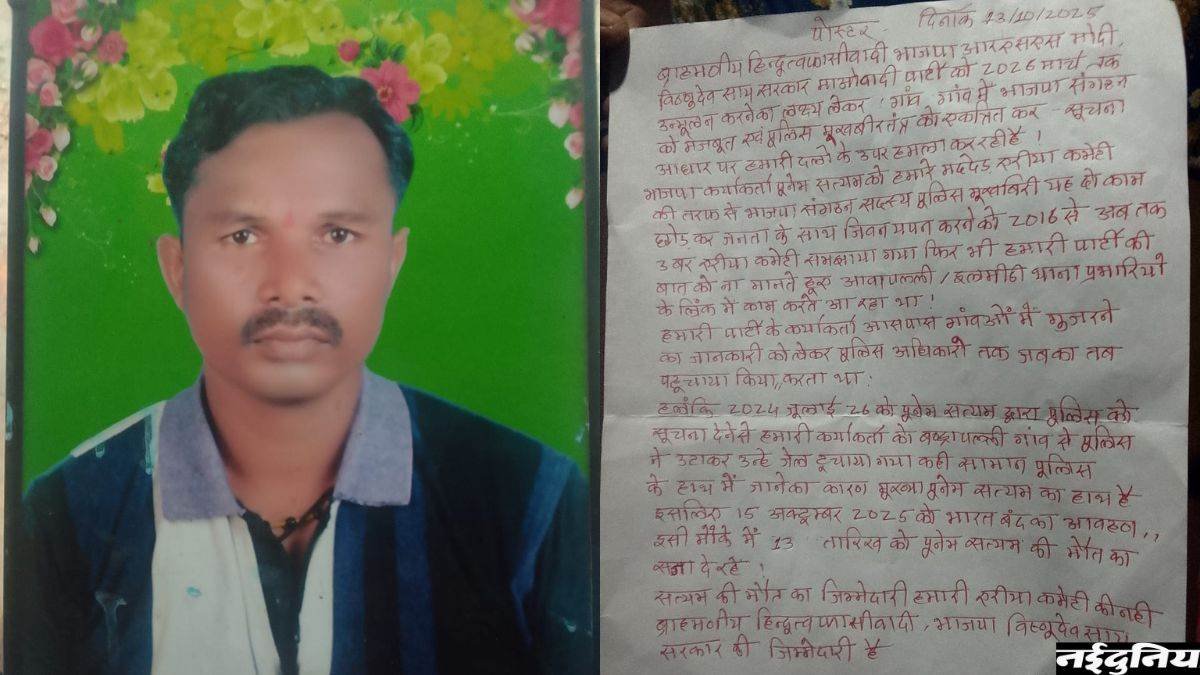 पोस्टर दिनांक 13/10/2025
ब्राहमणीय हिन्दुत्वफासीवादी भाजपा आरएसएस मोदी,
विष्णूदेव साय सरकार माओवादी पार्टी को 2026 मार्च तक
उन्मूलन करनेका लक्ष्य लेकर गांव, गांव में भाजपा संगठन
को मजबूत एवं पुलिस मूखबीरतंत्र को एकत्रित कर - सूचना
आधार पर हमारी दलो के उपर हमला कर रही है !
भाजपा कार्यकर्ता पूनेम सत्यम को हमारे मददेड़ एरीया कमेटी
की तरफ से भाजपा संगठन सदस्य पुलिस मूखबिरी यह दो काम
छोड़ कर जनता के साथ जिवन यपन करने को 2016 से अब तक
3 बार एरीया कमेटी समझाया गया फिर भी हमारी पार्टी की
बात को ना मानते हूए आवापल्ली / इलमीडी थाना प्रभारियो
के लिंक मे काम करते आ रहा था !
हमारी पार्टी के कर्यकर्ता आसपास गांवओं में गुजरने
का जानकारी को लेकर पुलिस अधिकारी तक जबका तब
पहूचाया किया,, करता था !
हलंकि 2024 जूलाई 26 को पूनेम सत्यम द्वारा पुलिस को
सूचना देने से हमारी कर्यकर्ता को गांव से पुलिस
ने उठाकर उन्हे जेल ठूचाया गया कही सामान पुलिस
के हाथ में जानेका कारण पूनेम सत्यम का हाथ है
इसलिए 15 अक्टूम्बर 2025 को भारत बंद का आवहन ,,
इसी मौके में 13 तारिख को पूनेम सत्यम की मौत का
सजा दे रहे !
सत्यम की मौत का जिम्मेदारी हमारी एरीया कमेटी की नही
ब्राहमणीय हिन्दुत्व फासीवादी, भाजपा विष्णूदेव साय
सरकार की जिम्मेदारी है
नईदुनिया